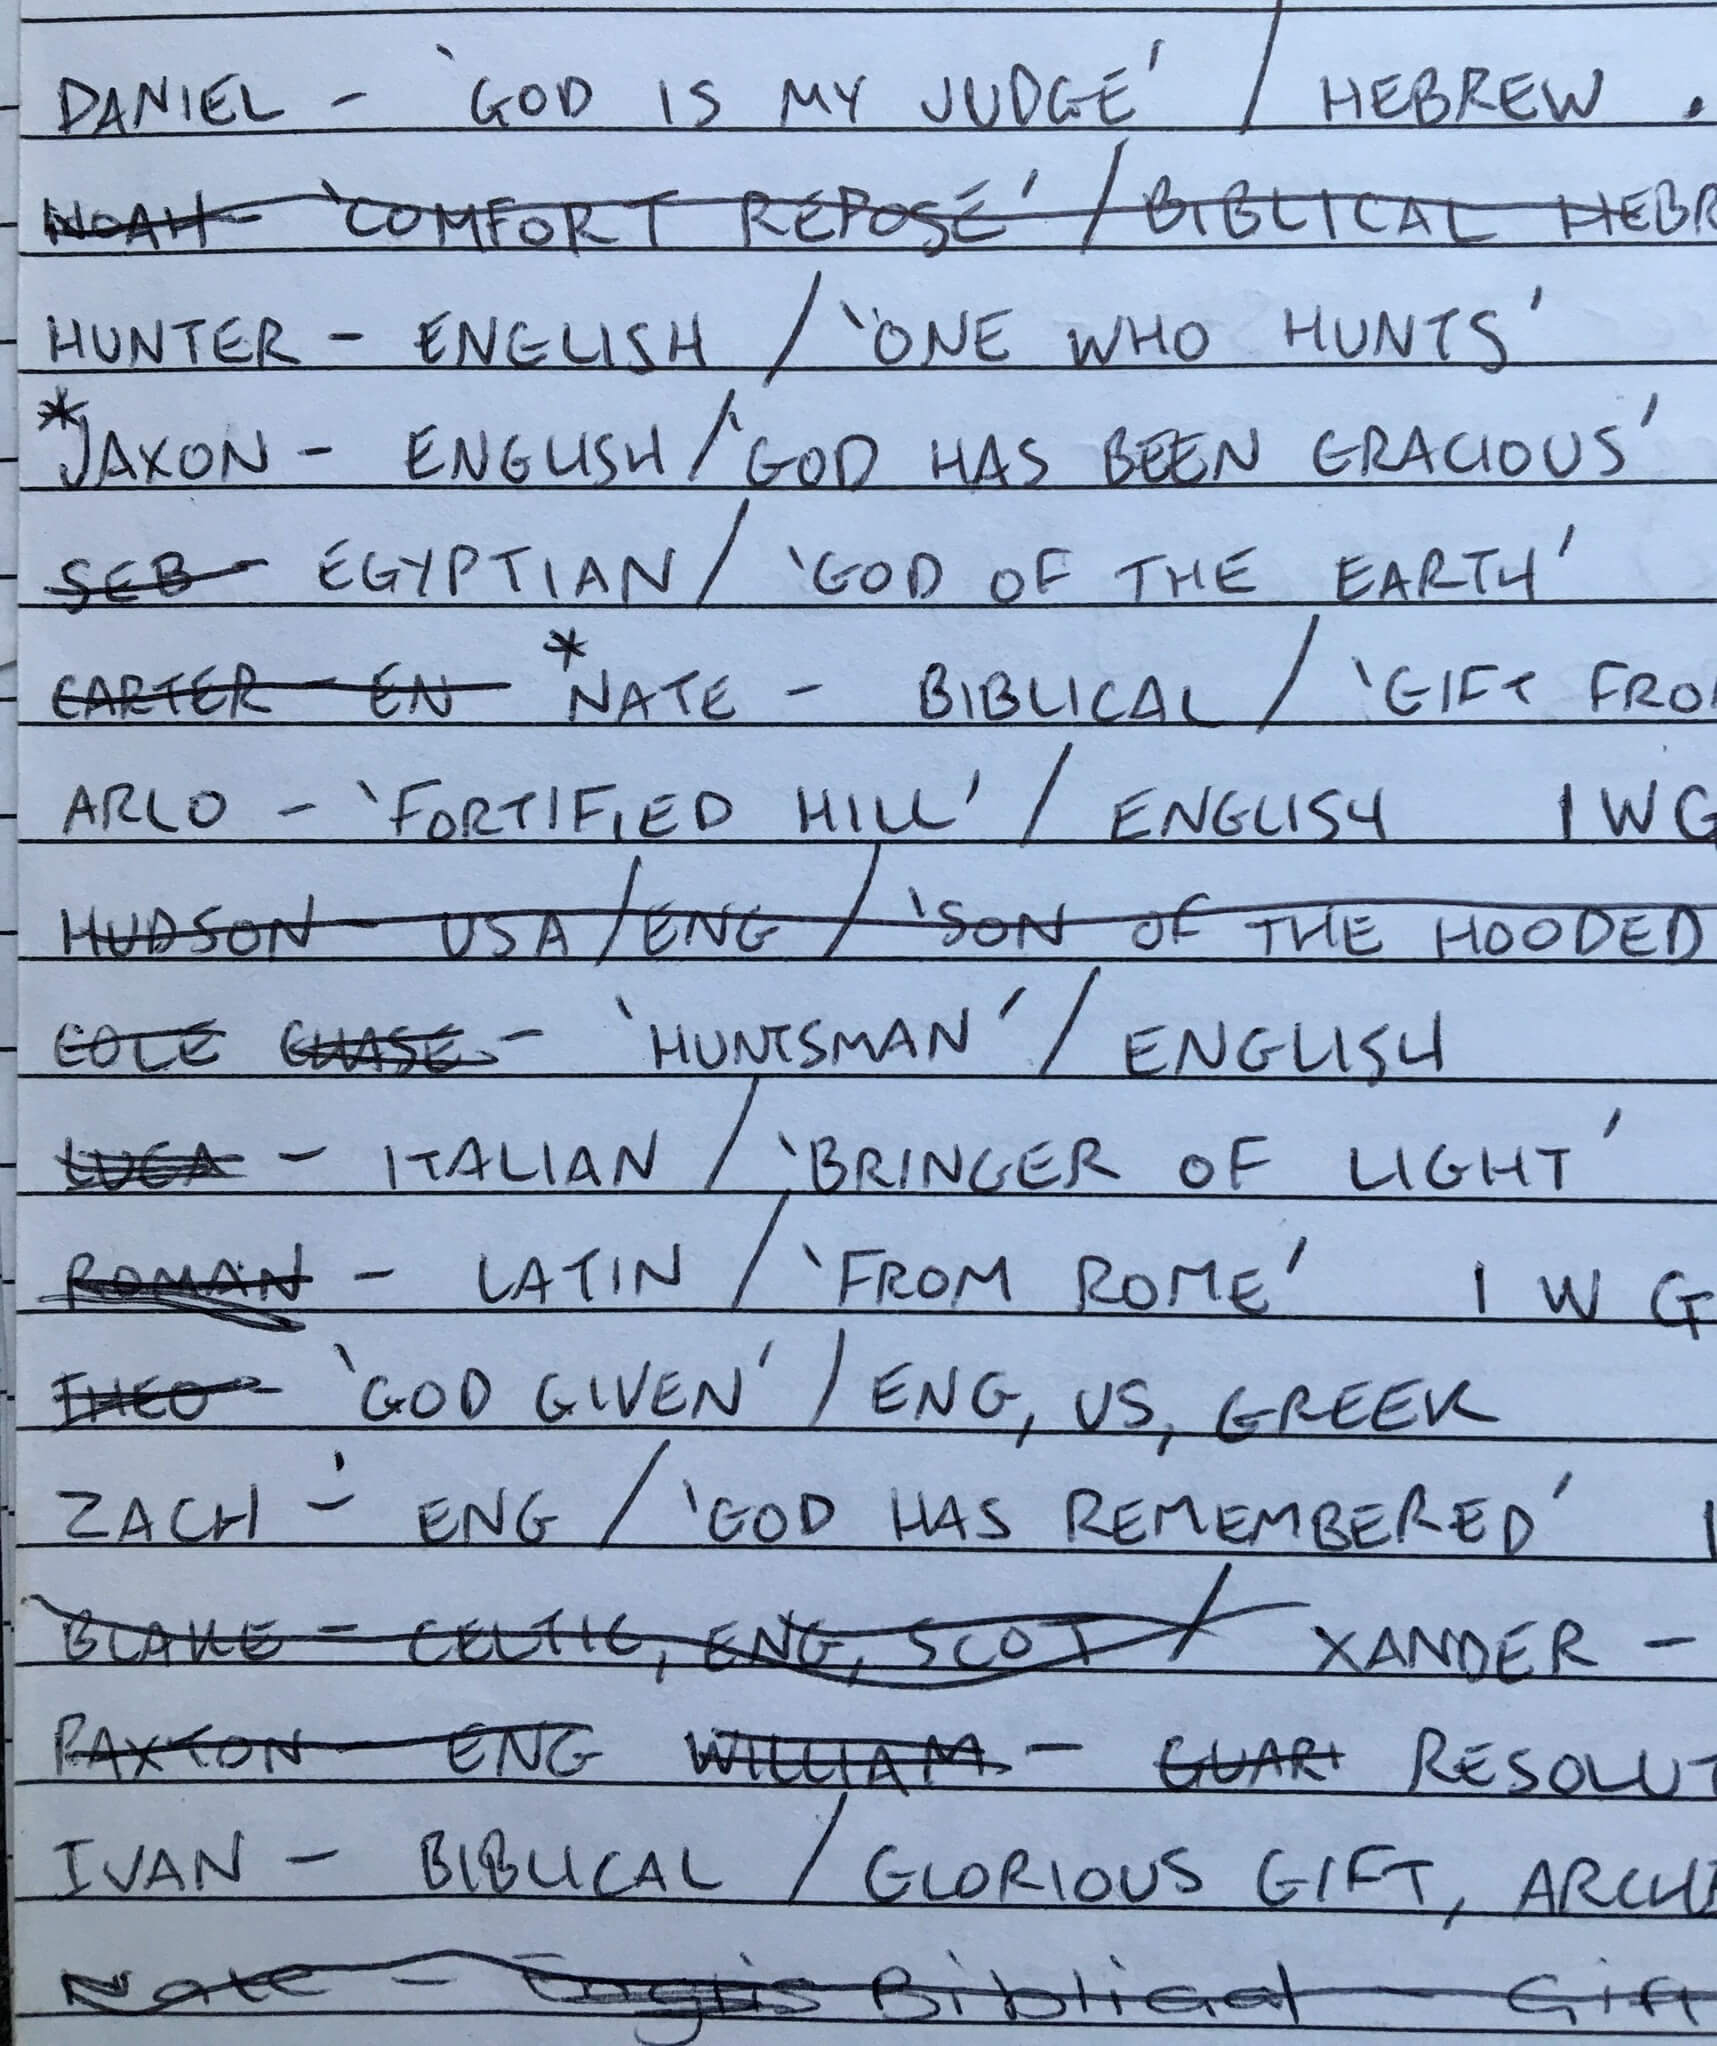 DANIEL - 'GOD IS MY JUDGE' / HEBREW .
NOAH - 'COMFORT REPOSE' / BIBLICAL HEBR
HUNTER - ENGLISH / 'ONE WHO HUNTS'
*JAXON - ENGLISH / 'GOD HAS BEEN GRACIOUS'
SEB - EGYPTIAN / 'GOD OF THE EARTH'
CARTER - EN *NATE - BIBLICAL / 'GIFT FRO
ARLO - 'FORTIFIED HILL' / ENGLISH 1 W G
HUDSON - USA / ENG / 'SON OF THE HOODED
COLE CHASE - 'HUNTSMAN' / ENGLISH
LUCA - ITALIAN / 'BRINGER OF LIGHT'
ROMAN - LATIN / 'FROM ROME' 1 W G
THEO - 'GOD GIVEN' / ENG, US, GREEK
ZACH - ENG / 'GOD HAS REMEMBERED' 1
BLAKE - CELTIC, ENG, SCOT / XANDER -
PAXTON - ENG WILLIAM - GUARI RESOLUT
IVAN - BIBLICAL / GLORIOUS GIFT, ARCHE
Nate - Englis Biblical - Gift